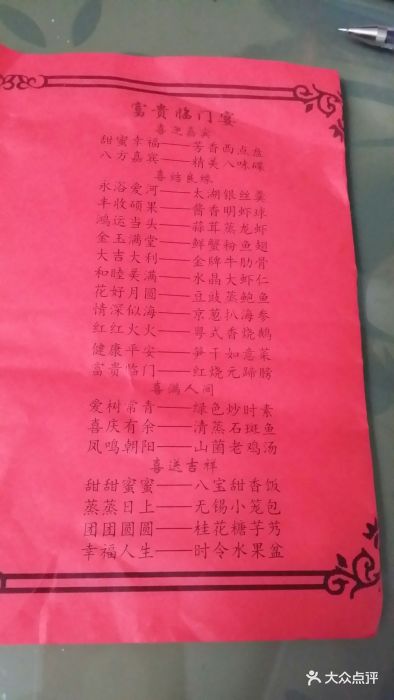 富贵临门宴
喜迎嘉宾
甜蜜幸福——芳香西点盘
八方嘉宾——精美八味碟
喜结良缘
永浴爱河——太湖银丝羹
丰收硕果——酱香明虾球
鸿运当头——蒜茸蒸龙虾
金玉满堂——鲜蟹粉鱼翅
大吉大利——金牌牛肋骨
和睦美满——水晶大虾仁
花好月圆——豆豉蒸鲍鱼
情深似海——京葱扒海参
红红火火——粤式香烧鹅
健康平安——笋干如意菜
富贵临门——红烧元蹄髈
喜满人间
爱树常青——绿色炒时素
喜庆有余——清蒸石斑鱼
凤鸣朝阳——山菌老鸡汤
喜送吉祥
甜甜蜜蜜——八宝甜香饭
蒸蒸日上——无锡小笼包
团团圆圆——桂花糖芋艿
幸福人生——时令水果盆
大众点评